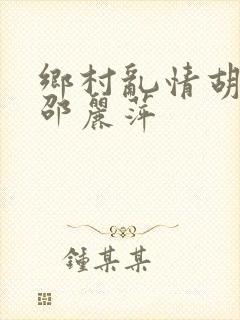 鄉村亂情胡
邵麗萍
鍾某某